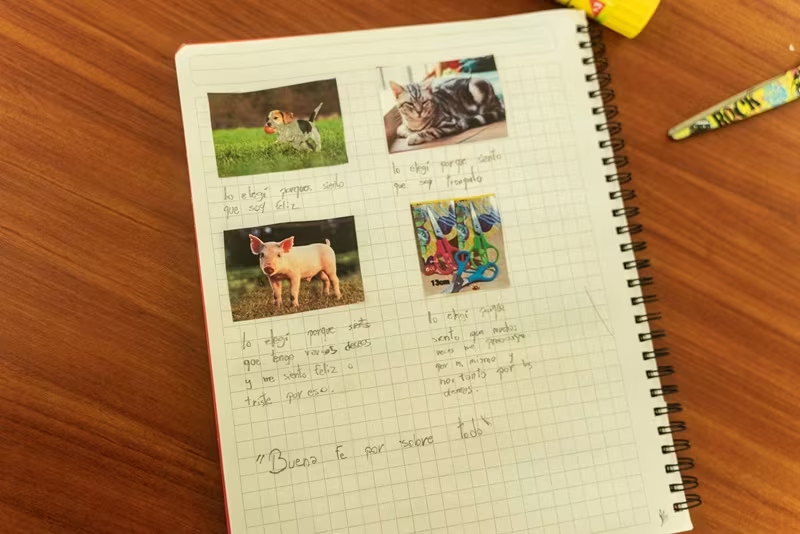 lo elegí porques siento
que soy feliz
lo elegí porque siento
que soy tranquilo
lo elegí porque siento
que tengo varios deseos
y me siento feliz o
triste por eso.
13cm
lo elegí porque
siento que muchas
veces me preocupo
por mi mismo y
no tanto por los
demas.
"Buena Fe por sobre todo"
ROCK